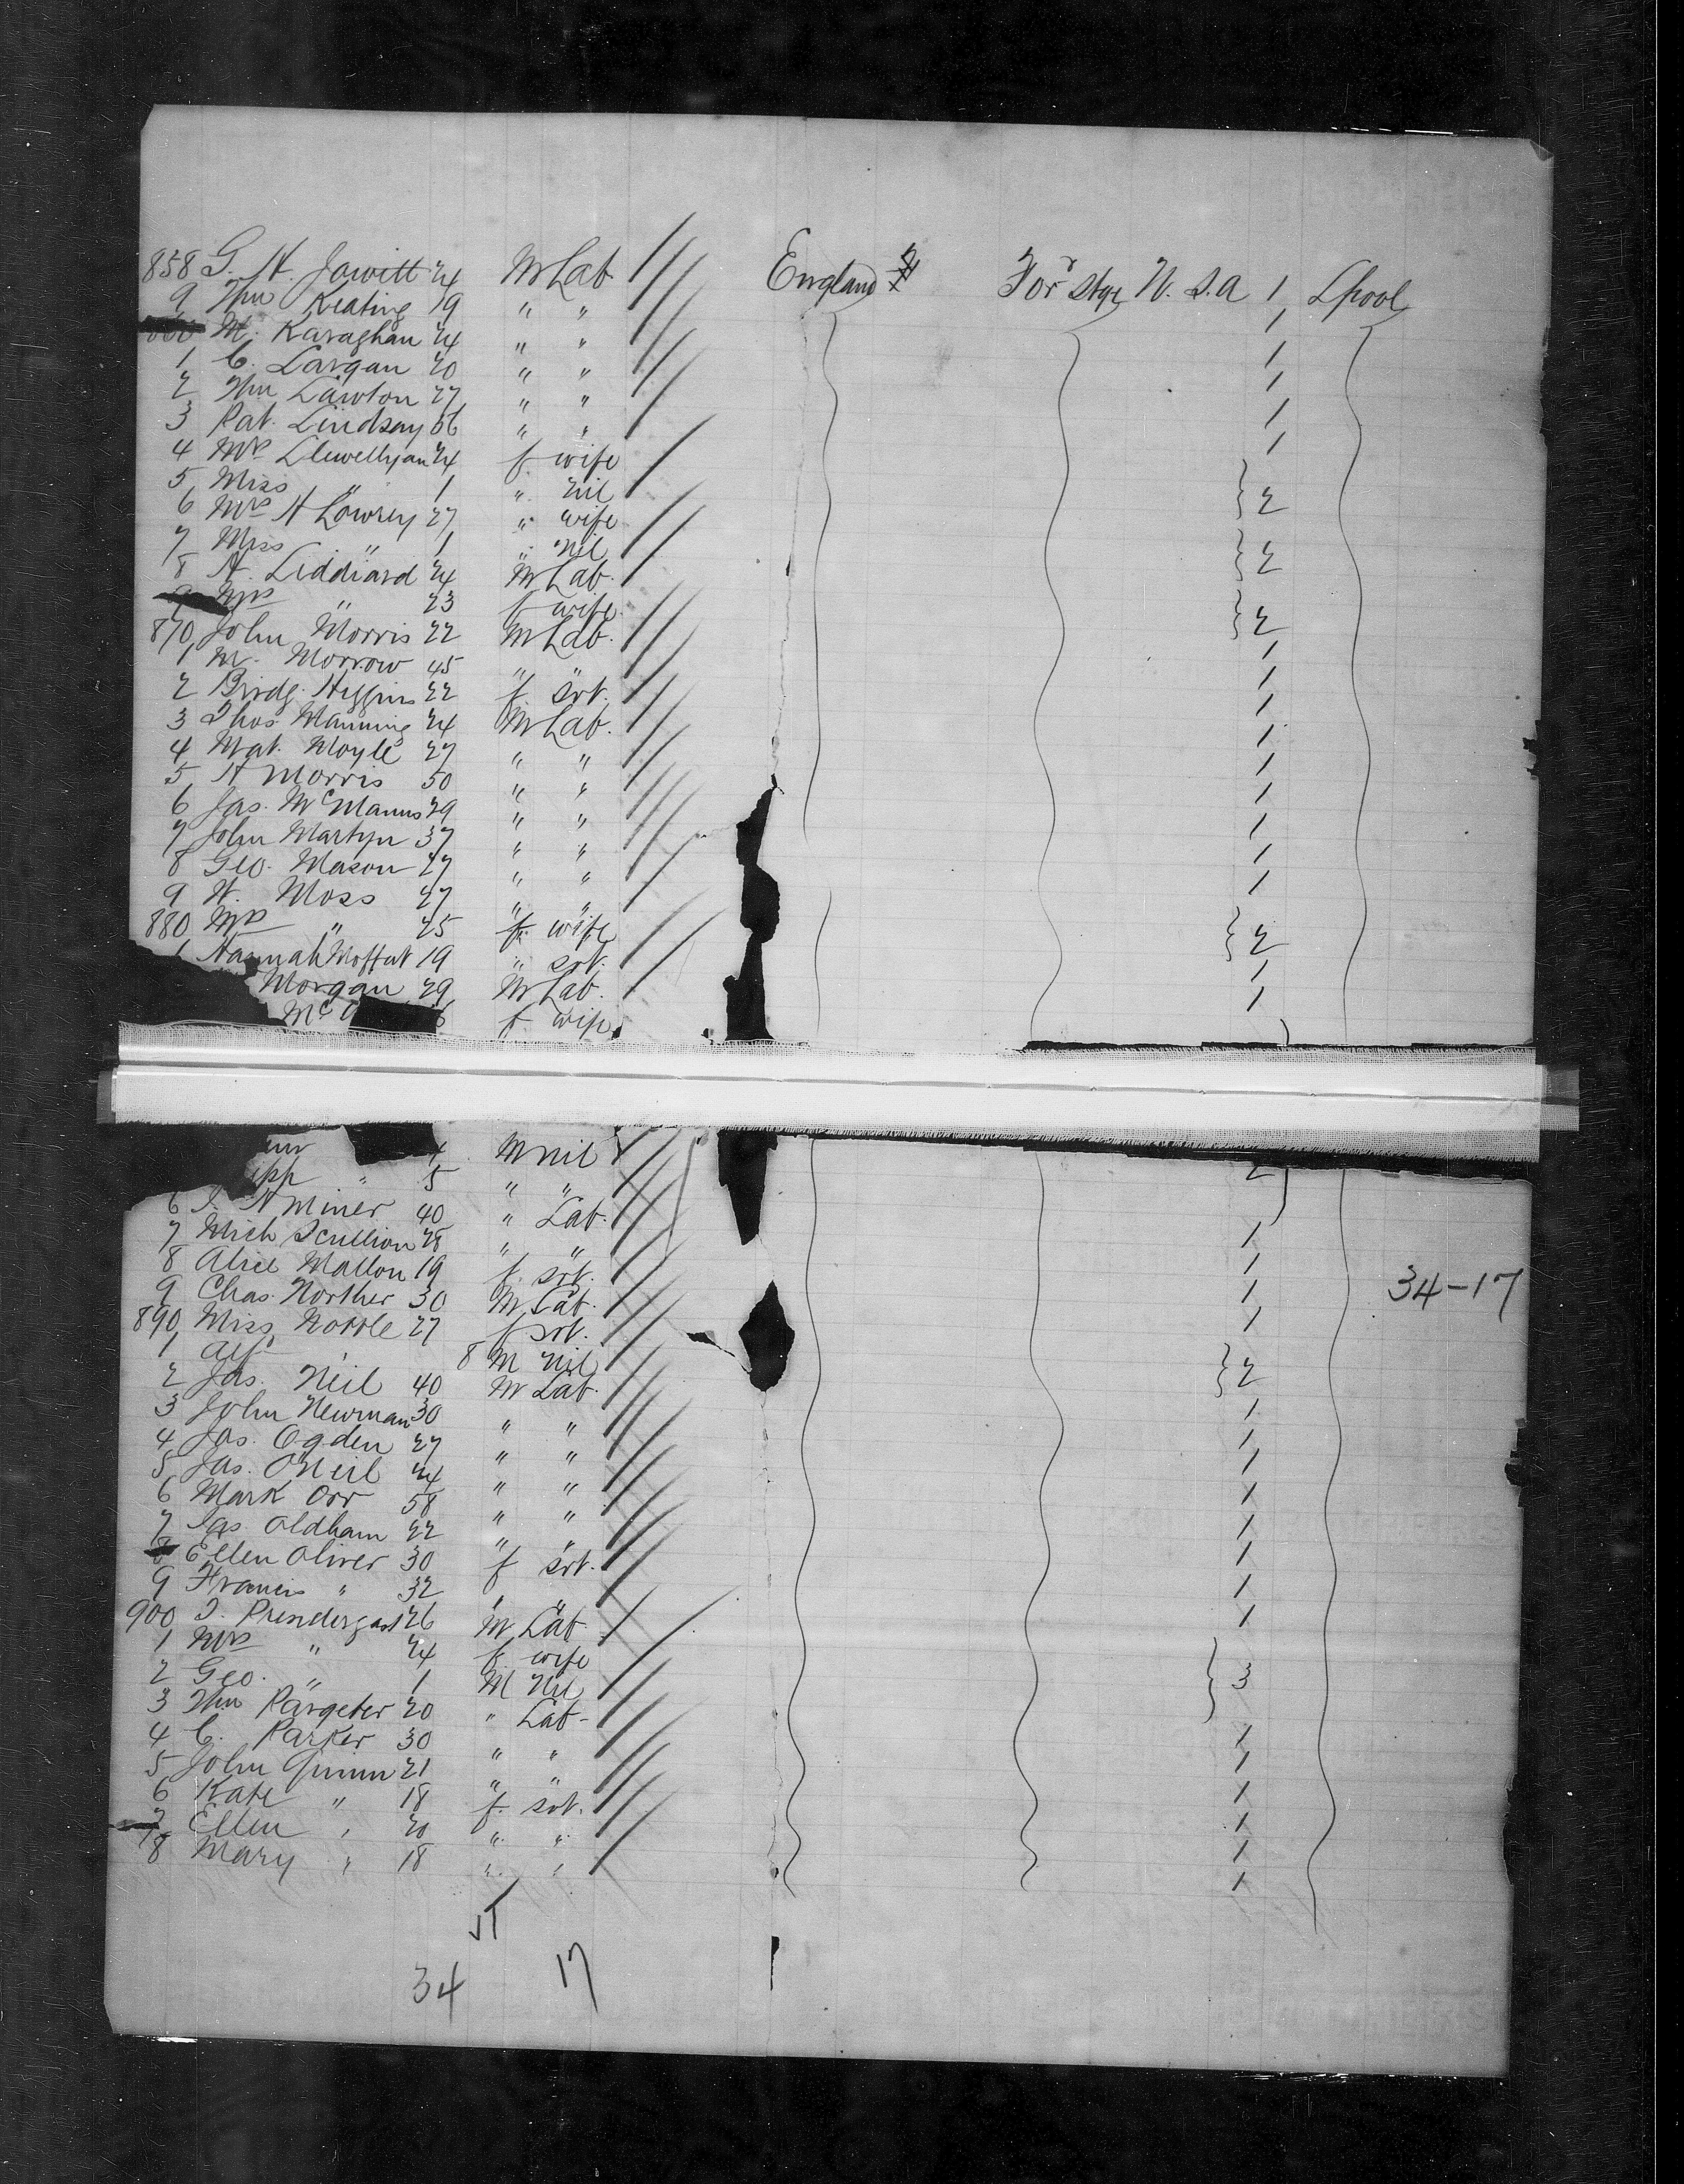 858 G. H. Jowitt 24 M Lab England For Stge U.S.A 1 Lpool
9 Wm Keating 19 " " 1
860 M. Karaghan 24 " " 1
1 C. Largan 20 " " 1
2 Wm Lawton 27 " " 1
3 Pat. Lindsay 56 " " 1
4 Mrs Llewellyan 24 f wife
5 Miss " 1 " nil 2
6 Mrs H Lowrey 27 " wife
7 Miss " 1 " nil 2
8 H. Liddiard 24 M Lab.
9 Mrs " 23 f wife 2
870 John Morris 22 M Lab. 1
1 M. Morrow 45 " " 1
2 Bridg. Higgins 22 f srt. 1
3 Thos Manning 24 M Lab. 1
4 Mat. Moyle 27 " " 1
5 H Morris 50 " " 1
6 Jas. McManus 29 " " 1
7 John Martyn 37 " " 1
8 Geo. Mason 27 " " 1
9 W. Moss 27 " "
880 Mrs " 25 f. wife 2
1 Hannah Moffat 19 " srt. 1
Morgan 29 M Lab. 1
Mc f wife
4 M nil
5 " " 2
6 J. H Miner 40 " Lab. 1
7 Mich Scullion 28 " " 1
8 Alice Mallon 19 f. srt. 1
9 Chas. Norther 30 M Lab. 1
890 Miss Nobble 27 f srt.
1 Alf. 8 M Nil 2
2 Jas. Neil 40 M Lab. 1
3 John Newman 30 " " 1
4 Jas. Ogden 27 " " 1
5 Jas. O'Neil 24 " " 1
6 Mark Orr 58 " " 1
7 Jas. Oldham 22 " " 1
8 Ellen Oliver 30 f srt. 1
9 Francis " 32 " " 1
900 J. Prendergast 26 M Lab
1 Mrs " 24 f. wife
2 Geo. " 1 M Nil 3
3 Wm Pargeter 20 " Lab- 1
4 C. Parker 30 " " 1
5 John Quinn 21 " " 1
6 Kate " 18 f. srt. 1
7 Ellen " 20 " " 1
8 Mary " 18 " " 1
34-17
34 17